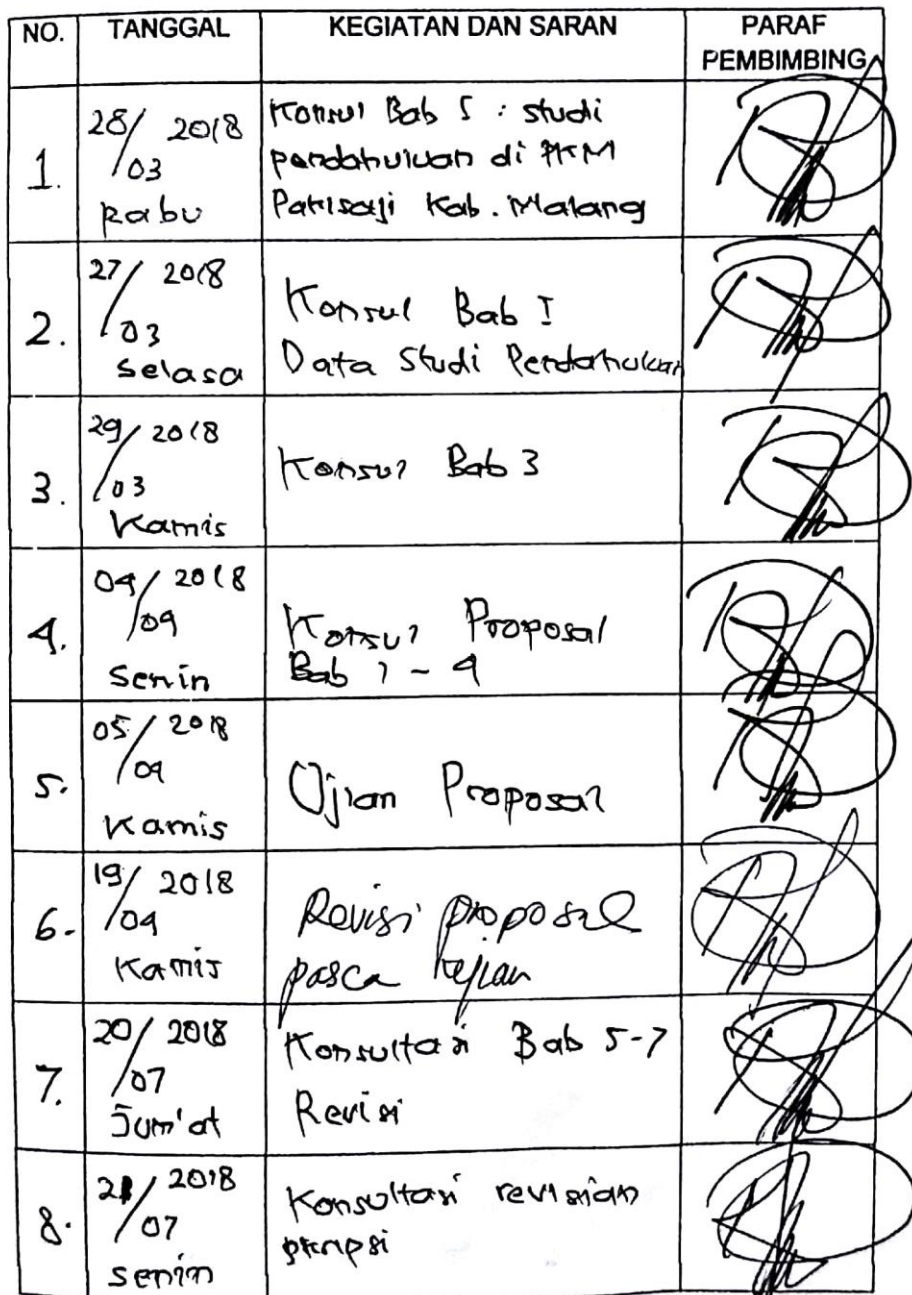 NO.
TANGGAL
KEGIATAN DAN SARAN
PARAF
PEMBIMBING
1.
28/ 2018
/03
Rabu
Konsul Bab I : studi
pendahuluan di PKM
Pakisaji Kab. Malang
2.
27/ 2018
/03
Selasa
Konsul Bab I
Data Studi Pendahuluan
3.
29/ 2018
/03
Kamis
Konsul Bab 3
4.
04/ 2018
/04
Senin
Konsul Proposal
Bab 1 - 4
5.
05/ 2018
/04
Kamis
Ujian Proposal
6.
19/ 2018
/04
Kamis
Revisi proposal
pasca Ujian
7.
20/ 2018
/07
Jum'at
Konsultasi Bab 5-7
Revisi
8.
2018
/07
Senin
Konsultasi revisian